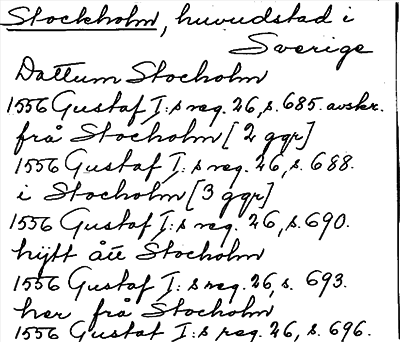 Stockholm, huvudstad i
Sverige
Dattum Stocholm
1556 Gustaf I:s reg. 26, s. 685. avskr.
frå Stocholm [2 ggr]
1556 Gustaf I:s reg. 26, s. 688.
i Stocholm [3 ggr]
1556 Gustaf I:s reg. 26, s. 690.
hijtt åt Stocholm
1556 Gustaf I:s reg. 26, s. 693.
her frå Stocholm
1556 Gustaf I:s reg. 26, s. 696.